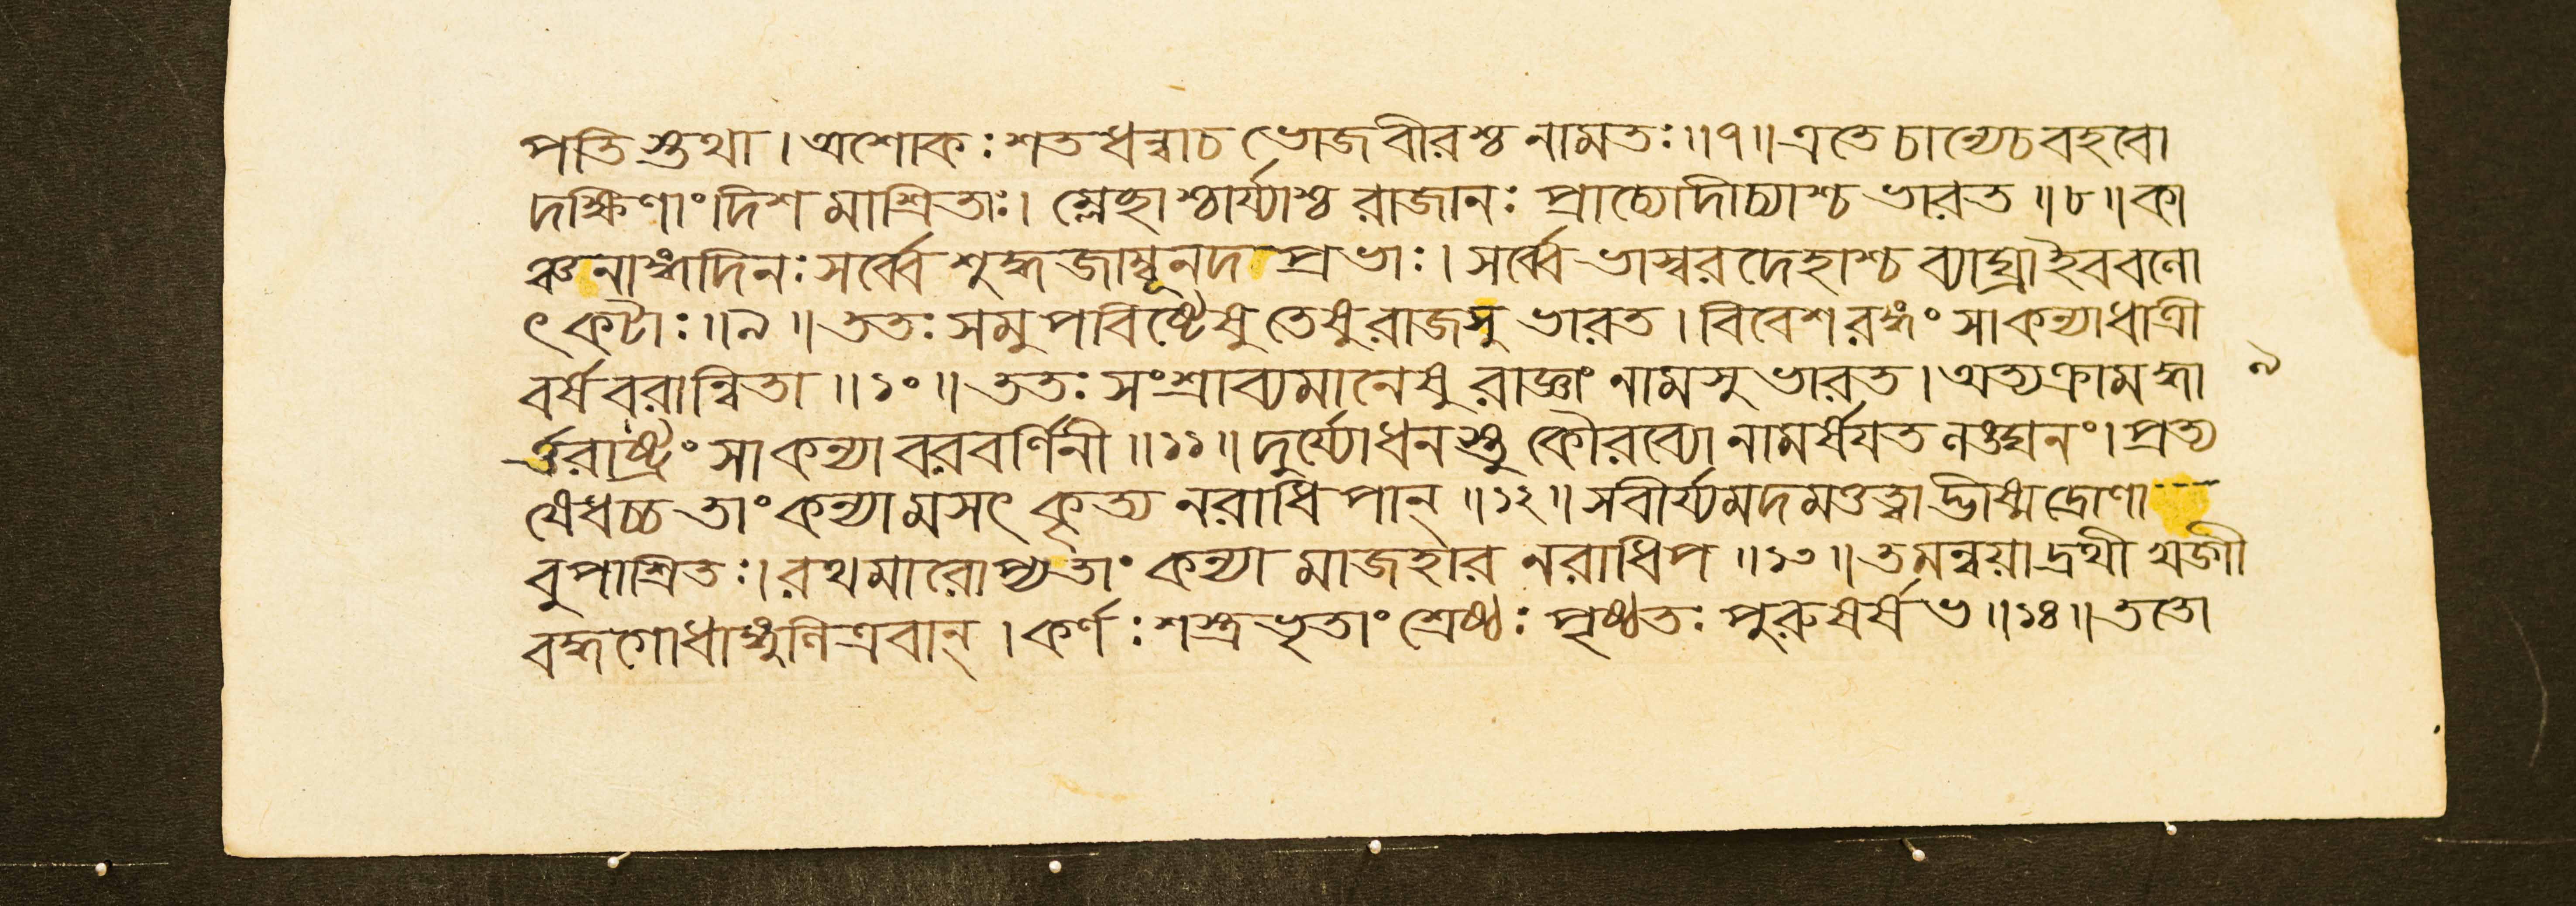 পতিস্তথা । অশোকঃ শতধন্বাচ ভোজবীরশ্চ নামতঃ ॥৭॥ এতে চান্যেচ বহবো
দক্ষিণাং দিশমাশ্রিতাঃ । ম্লেচ্ছাশ্চার্য্যাশ্চ রাজানঃ প্রাচ্যোদীচ্যাশ্চ ভারত ॥৮॥ কা
ঞ্চনাঙ্গদিনঃ সর্ব্বে শুদ্ধজাম্বূনদপ্রভাঃ । সর্ব্বে ভাস্বরদেহাশ্চ ব্যাঘ্রাইববণো
ৎকটাঃ ॥৯॥ ততঃ সমুপবিষ্টেষু তেষু রাজসু ভারত । বিবেশ রঙ্গং সা কন্যা ধাত্রী
বর্ষবরান্বিতা ॥১০॥ ততঃ সংশ্রাব্যমানেষু রাজ্ঞাং নামসু ভারত । অত্যক্রামদ্ধা
র্ত্তরাষ্ট্রং সা কন্যা বরবর্ণিনী ॥১১॥ দুর্য্যোধনস্তু কৌরব্যো নামর্ষয়ত লঙ্ঘনং । প্রত্য
ষেধচ্চ তাং কন্যামসৎকৃত্য নরাধিপান্ ॥১২॥ সবীর্য্যমদমত্তত্বাদ্ভীষ্মদ্রোণা
বুপাশ্রিতঃ । রথমারোপ্য তাং কন্যামাজহার নরাধিপ ॥১৩॥ তমন্বয়াদ্রথী খড়্গী
বদ্ধগোধাঙ্গুলিত্রবান্ । কর্ণঃ শস্ত্রভৃতাং শ্রেষ্ঠঃ পৃষ্ঠতঃ পুরুষর্ষভ ॥১৪॥ ততো
৯